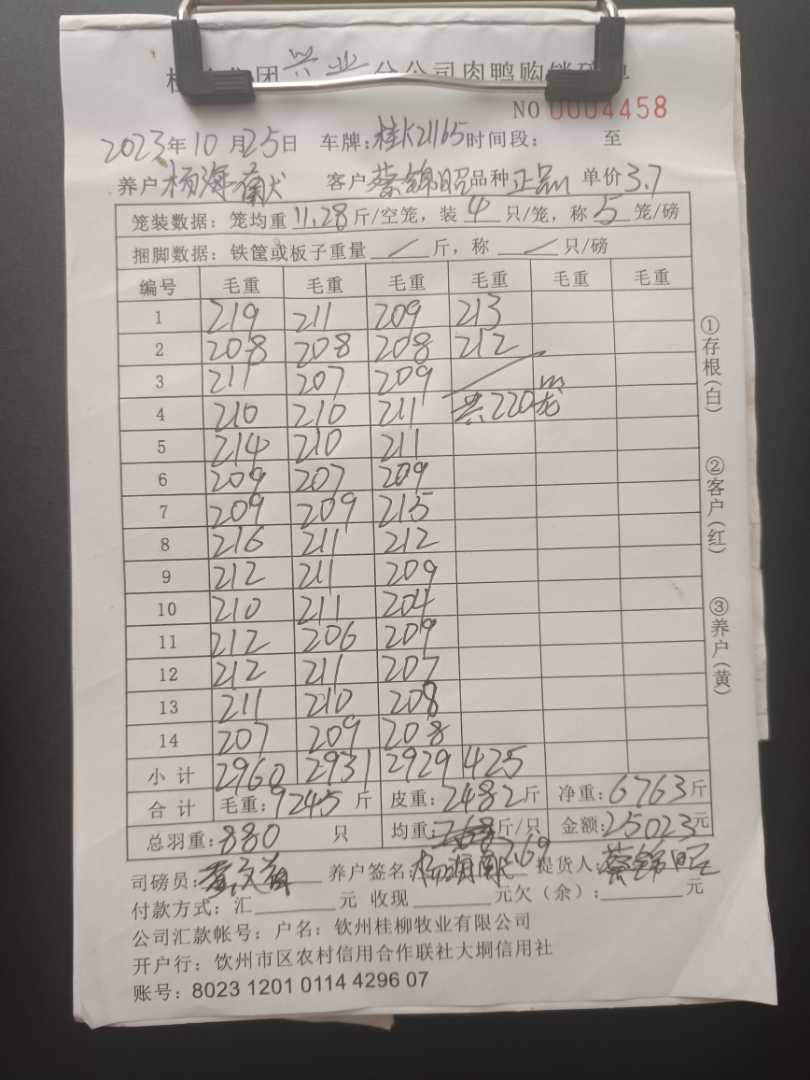 团兴业分公司肉鸭购销
NO 0004458
2023年10月25日 车牌:桂K21165时间段: 至
养户杨海献 客户蔡锦昭品种正品 单价3.7
笼装数据: 笼均重11.28斤/空笼, 装4只/笼, 称5笼/磅
捆脚数据: 铁筐或板子重量/斤, 称/只/磅
编号 毛重 毛重 毛重 毛重 毛重 毛重
1 219 211 209 213
2 208 208 208 212
3 211 207 209
4 210 210 211 共220笼
5 214 210 211
6 209 207 209
7 209 209 215
8 216 211 212
9 212 211 209
10 210 211 204
11 212 206 209
12 212 211 207
13 211 210 208
14 207 209 208
小计 2960 2931 2929 425
合计 毛重:9245斤 皮重:2482斤 净重:6763斤
总羽重:880只 均重:斤/只 金额:25023元
7.69
司磅员: 养户签名:杨海献 提货人:蔡锦昭
付款方式: 汇 元 收现 元欠(余): 元
公司汇款帐号: 户名: 钦州桂柳牧业有限公司
开户行: 钦州市区农村信用合作联社大垌信用社
账号: 8023 1201 0114 4296 07
①存根(白)
②客户(红)
③养户(黄)